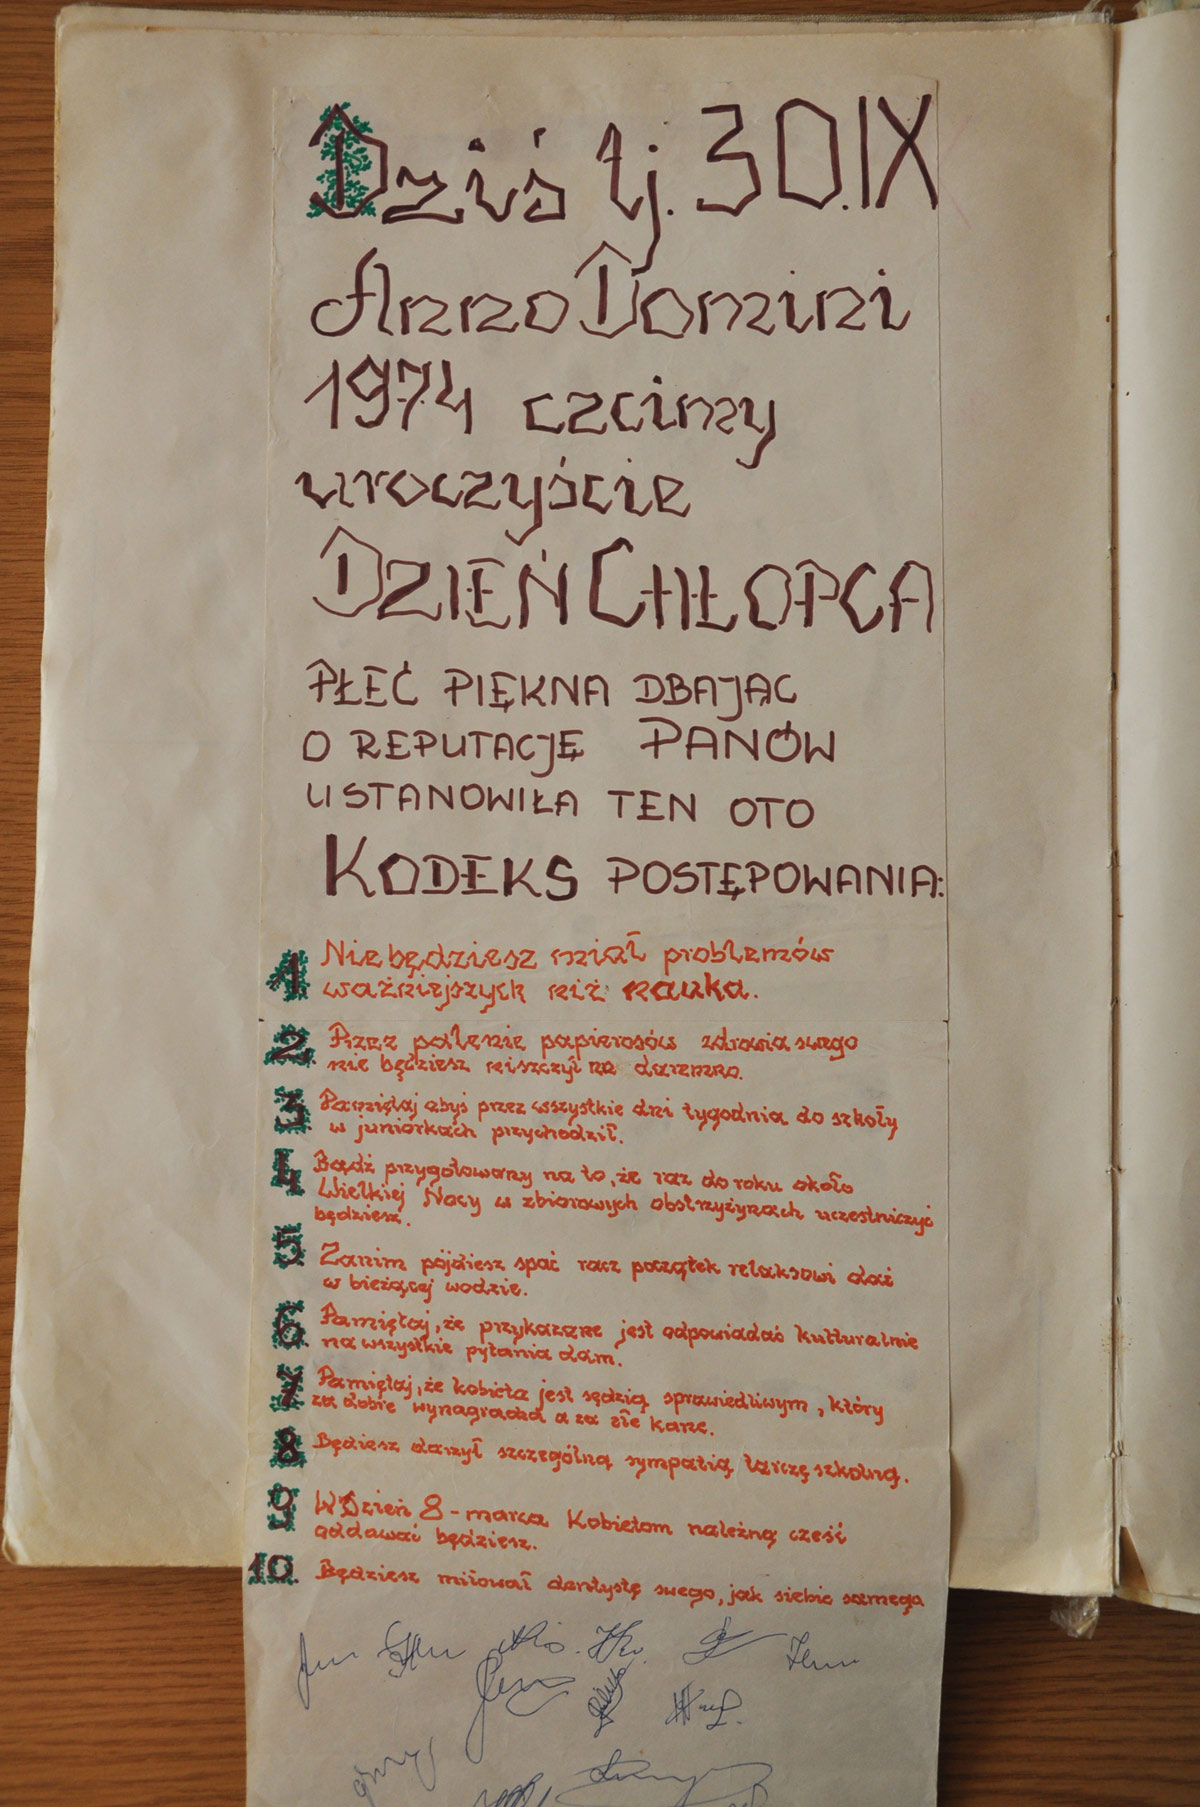 Dziś tj. 30.IX
Anno Domini
1974 czcimy
uroczyście
DZIEŃ CHŁOPCA
PŁEĆ PIĘKNA DBAJĄC
O REPUTACJĘ PANÓW
USTANOWIŁA TEN OTO
KODEKS POSTĘPOWANIA:
1 Nie będziesz miał problemów
ważniejszych niż nauka.
2 Przez palenie papierosów zdrowia swego
nie będziesz niszczył na daremno.
3 Pamiętaj abyś przez wszystkie dni tygodnia do szkoły
w juniorkach przychodził.
4 Bądź przygotowany na to, że raz do roku około
Wielkiej Nocy w zbiorowych obstrzyżynach uczestniczyć
będziesz.
5 Zanim pójdziesz spać racz początek relaksowi dać
w bieżącej wodzie.
6 Pamiętaj, że przykazane jest odpowiadać kulturalnie
na wszystkie pytania dam.
7 Pamiętaj, że kobieta jest sędzią sprawiedliwym, który
za dobre wynagradza a za złe karze.
8 Będziesz darzył szczególną sympatią tarczę szkolną.
9 W Dzień 8 - marca Kobietom należną cześć
oddawać będziesz.
10 Będziesz miłował dentystę swego, jak siebie samego